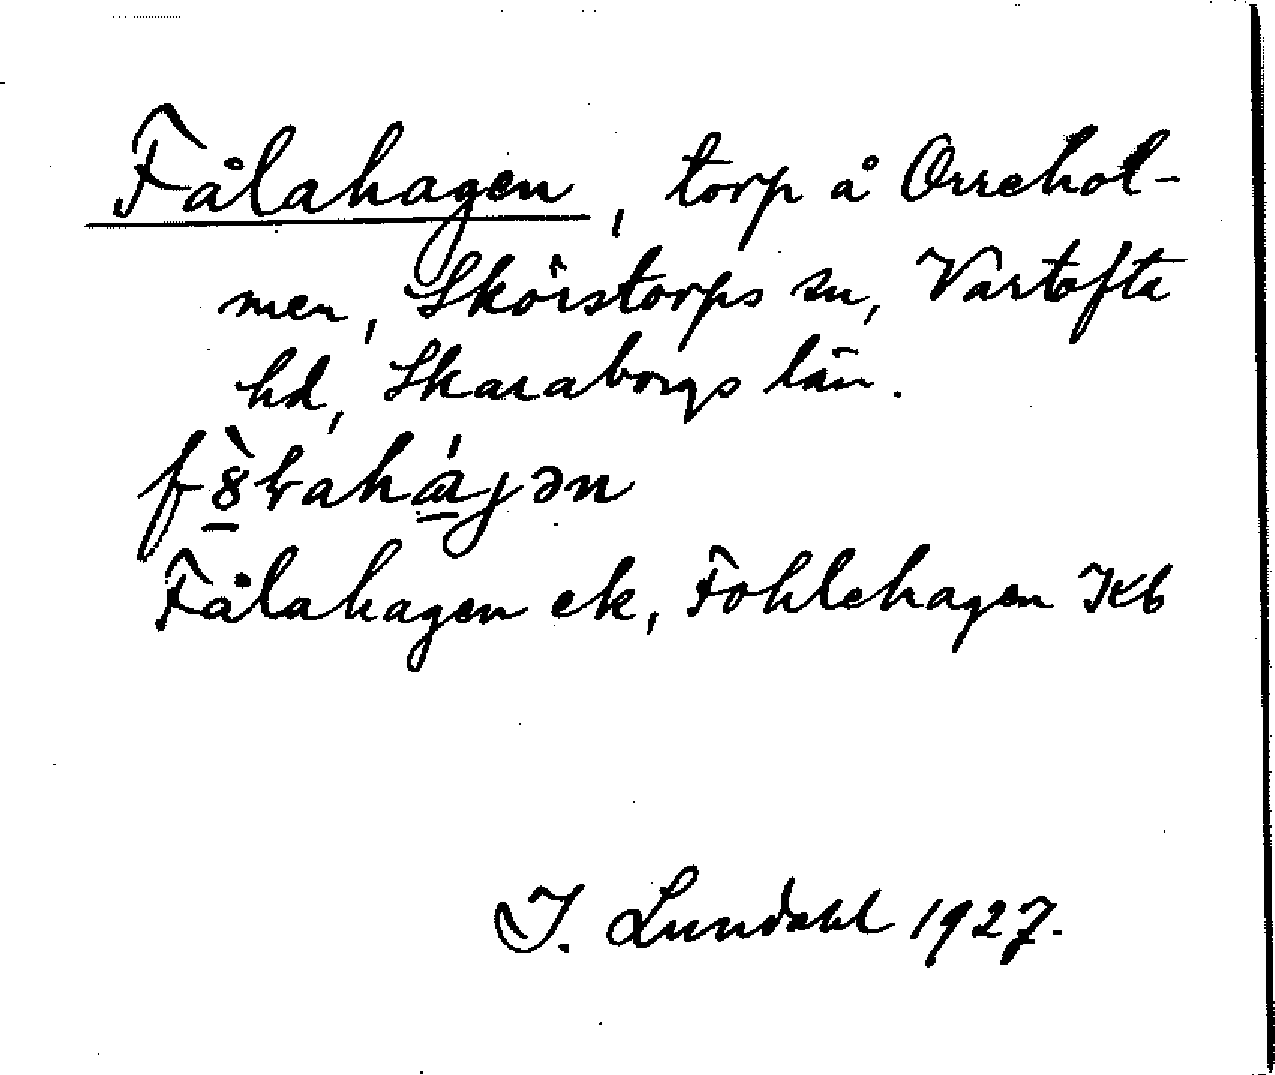 Fålahagen, torp å Orrehol-
men, Skörstorps sn, Vartofta
hd, Skaraborgs län.
f8̱̀ɽahá̱ɡən
Fålahagen ek, Fohlehagen Kb
I. Lundahl 1927.